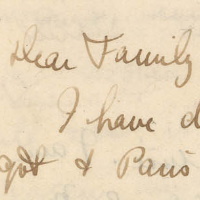 Dear Family
I have d
got & Paris